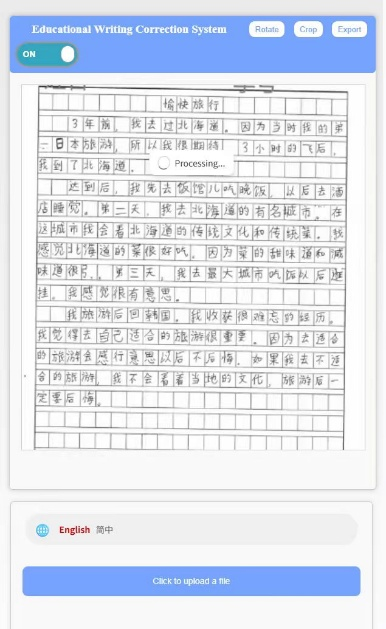 Educational Writing Correction System
Rotate
Crop
Export
ON
愉快旅行
3年前，我去过北海道。因为当时我的第
一日本旅游，所以我很期待！3小时的飞后，
我到了北海道。
Processing...
达到后，我先去饭馆儿吃晚饭，以后去酒
店睡觉。第二天，我去北海道的有名城市。在
这城市我会看北海道的传统文化和传统菜。我
感觉北海道的菜很好吃。因为菜的甜味道和咸
味道很。第三天，我去最大城市吃饭以后逛
挂。我感觉很有意思。
我旅游后回韩国。我收获很难忘的经历。
我觉得去自己适合的旅游很重要。因为去适合
的旅游会感行意思以后不后悔。如果我去不适
合的旅游，我不会看着当地的文化，旅游后一
定要后悔。
English 简中
Click to upload a file